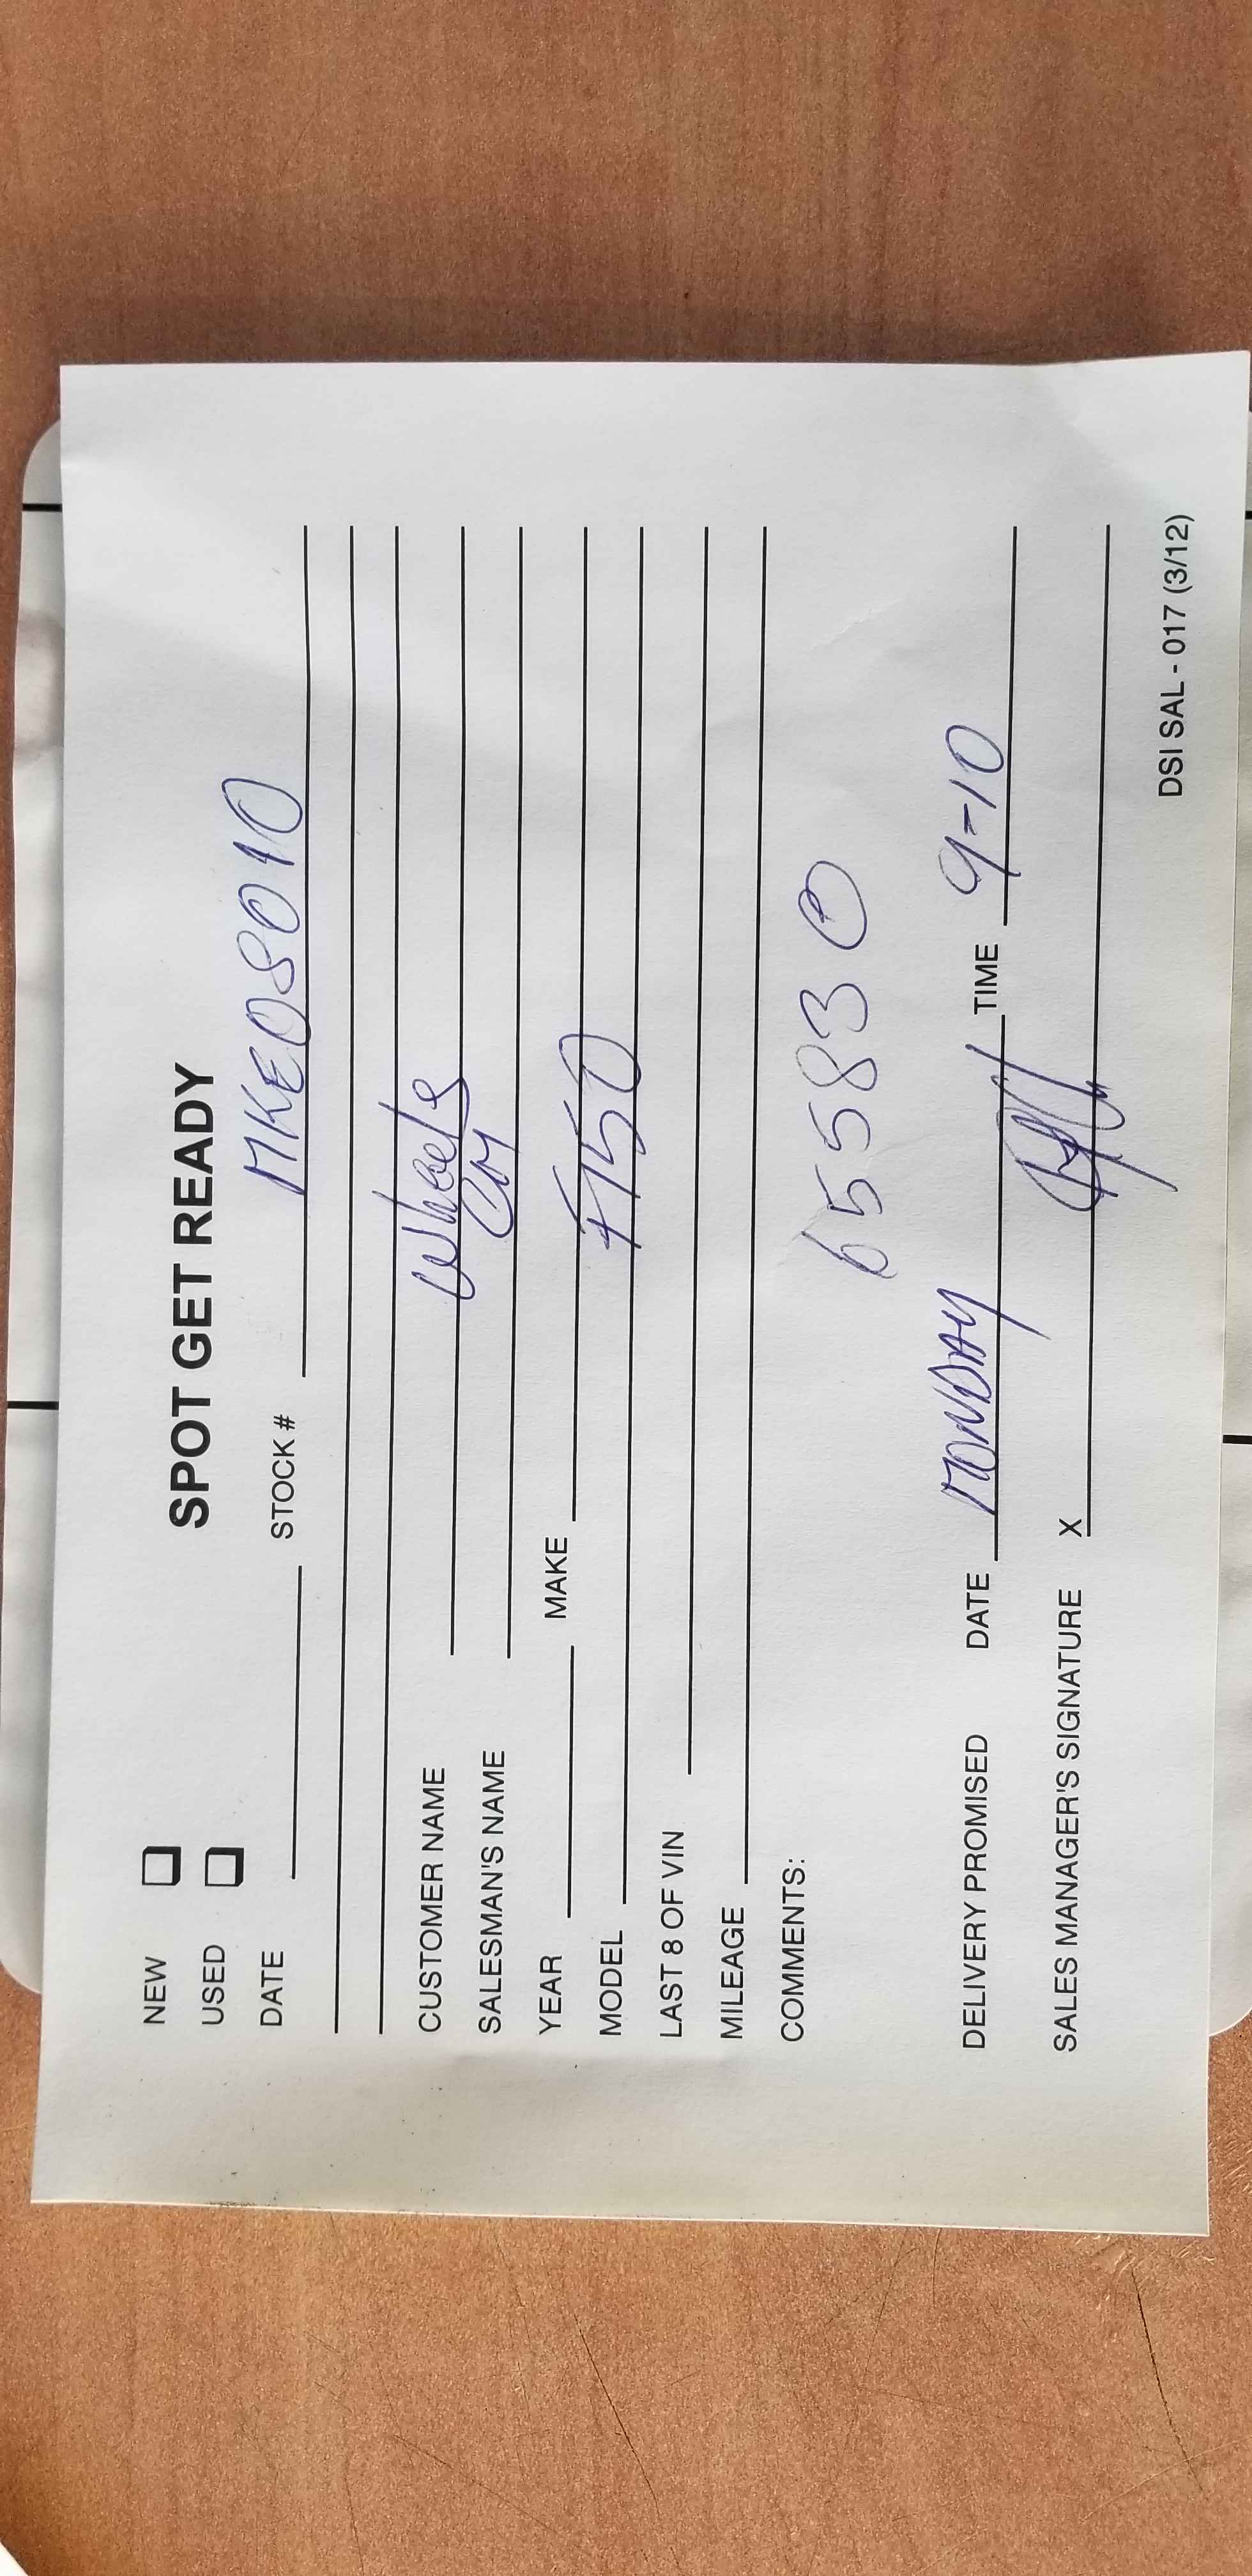 SPOT GET READY
NEW
USED
DATE STOCK # MKE08010
CUSTOMER NAME Wheels
SALESMAN'S NAME
YEAR MAKE
MODEL F150
LAST 8 OF VIN
MILEAGE
COMMENTS:
65583
DELIVERY PROMISED DATE MONDAY TIME 9-10
SALES MANAGER'S SIGNATURE X
DSI SAL - 017 (3/12)